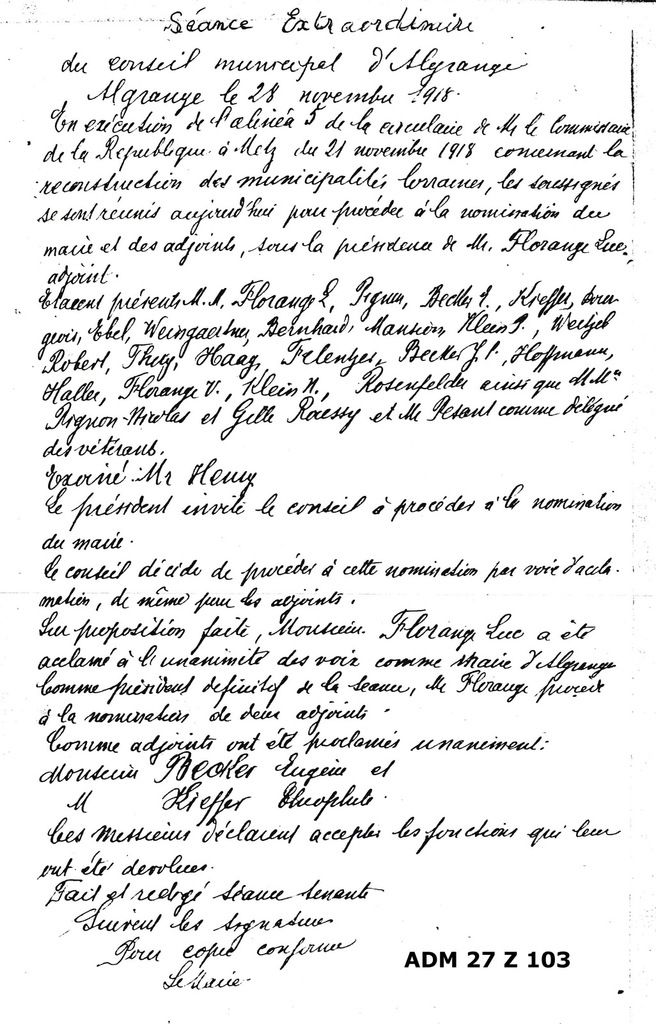 Séance Extraordinaire
du conseil municipal d'Algrange
Algrange le 28 novembre 1918.
En exécution de l'alinéa 5 de la circulaire de Mr le Commissaire
de la République à Metz du 21 novembre 1918 concernant la
reconstruction des municipalités lorraines, les soussignés
se sont réunis aujourd'hui pour procéder à la nomination du
maire et des adjoints, sous la présidence de Mr. Florange Luc,
adjoint.
Etaient présents M.M. Florange L, Pignon, Becker E., Kieffer, Bour-
geois, Ebel, Weingaertner, Bernhard, Mansion, Klein P., Wertzel
Robert, Thiry, Haag, Frlentzer, Becker J.P., Hoffmann,
Haller, Florange V., Klein N., Rosenfelder ainsi que M.M.
Pignon-Nicolas et Gelle Roessy et Mr Pesant comme délégué
des vétérans.
Excusé Mr Henry
Le président invite le conseil à procéder à la nomination
du maire.
Le conseil décide de procéder à cette nomination par voie d'accla-
mation, de même pour les adjoints.
Sur proposition faite, Monsieur Florange Luc a été
acclamé à l'unanimité des voix comme maire d'Algrange
Comme président définitif de la séance, Mr Florange procède
à la nomination de deux adjoints.
Comme adjoints ont été proclamés unanimement:
Monsieur Becker Eugène et
M Kieffer Théophile.
Ces messieurs déclarent accepter les fonctions qui leur
ont été dévolues.
Fait et rédigé séance tenante
Suivent les signatures
Pour copie conforme
Le Maire.
ADM 27 Z 103